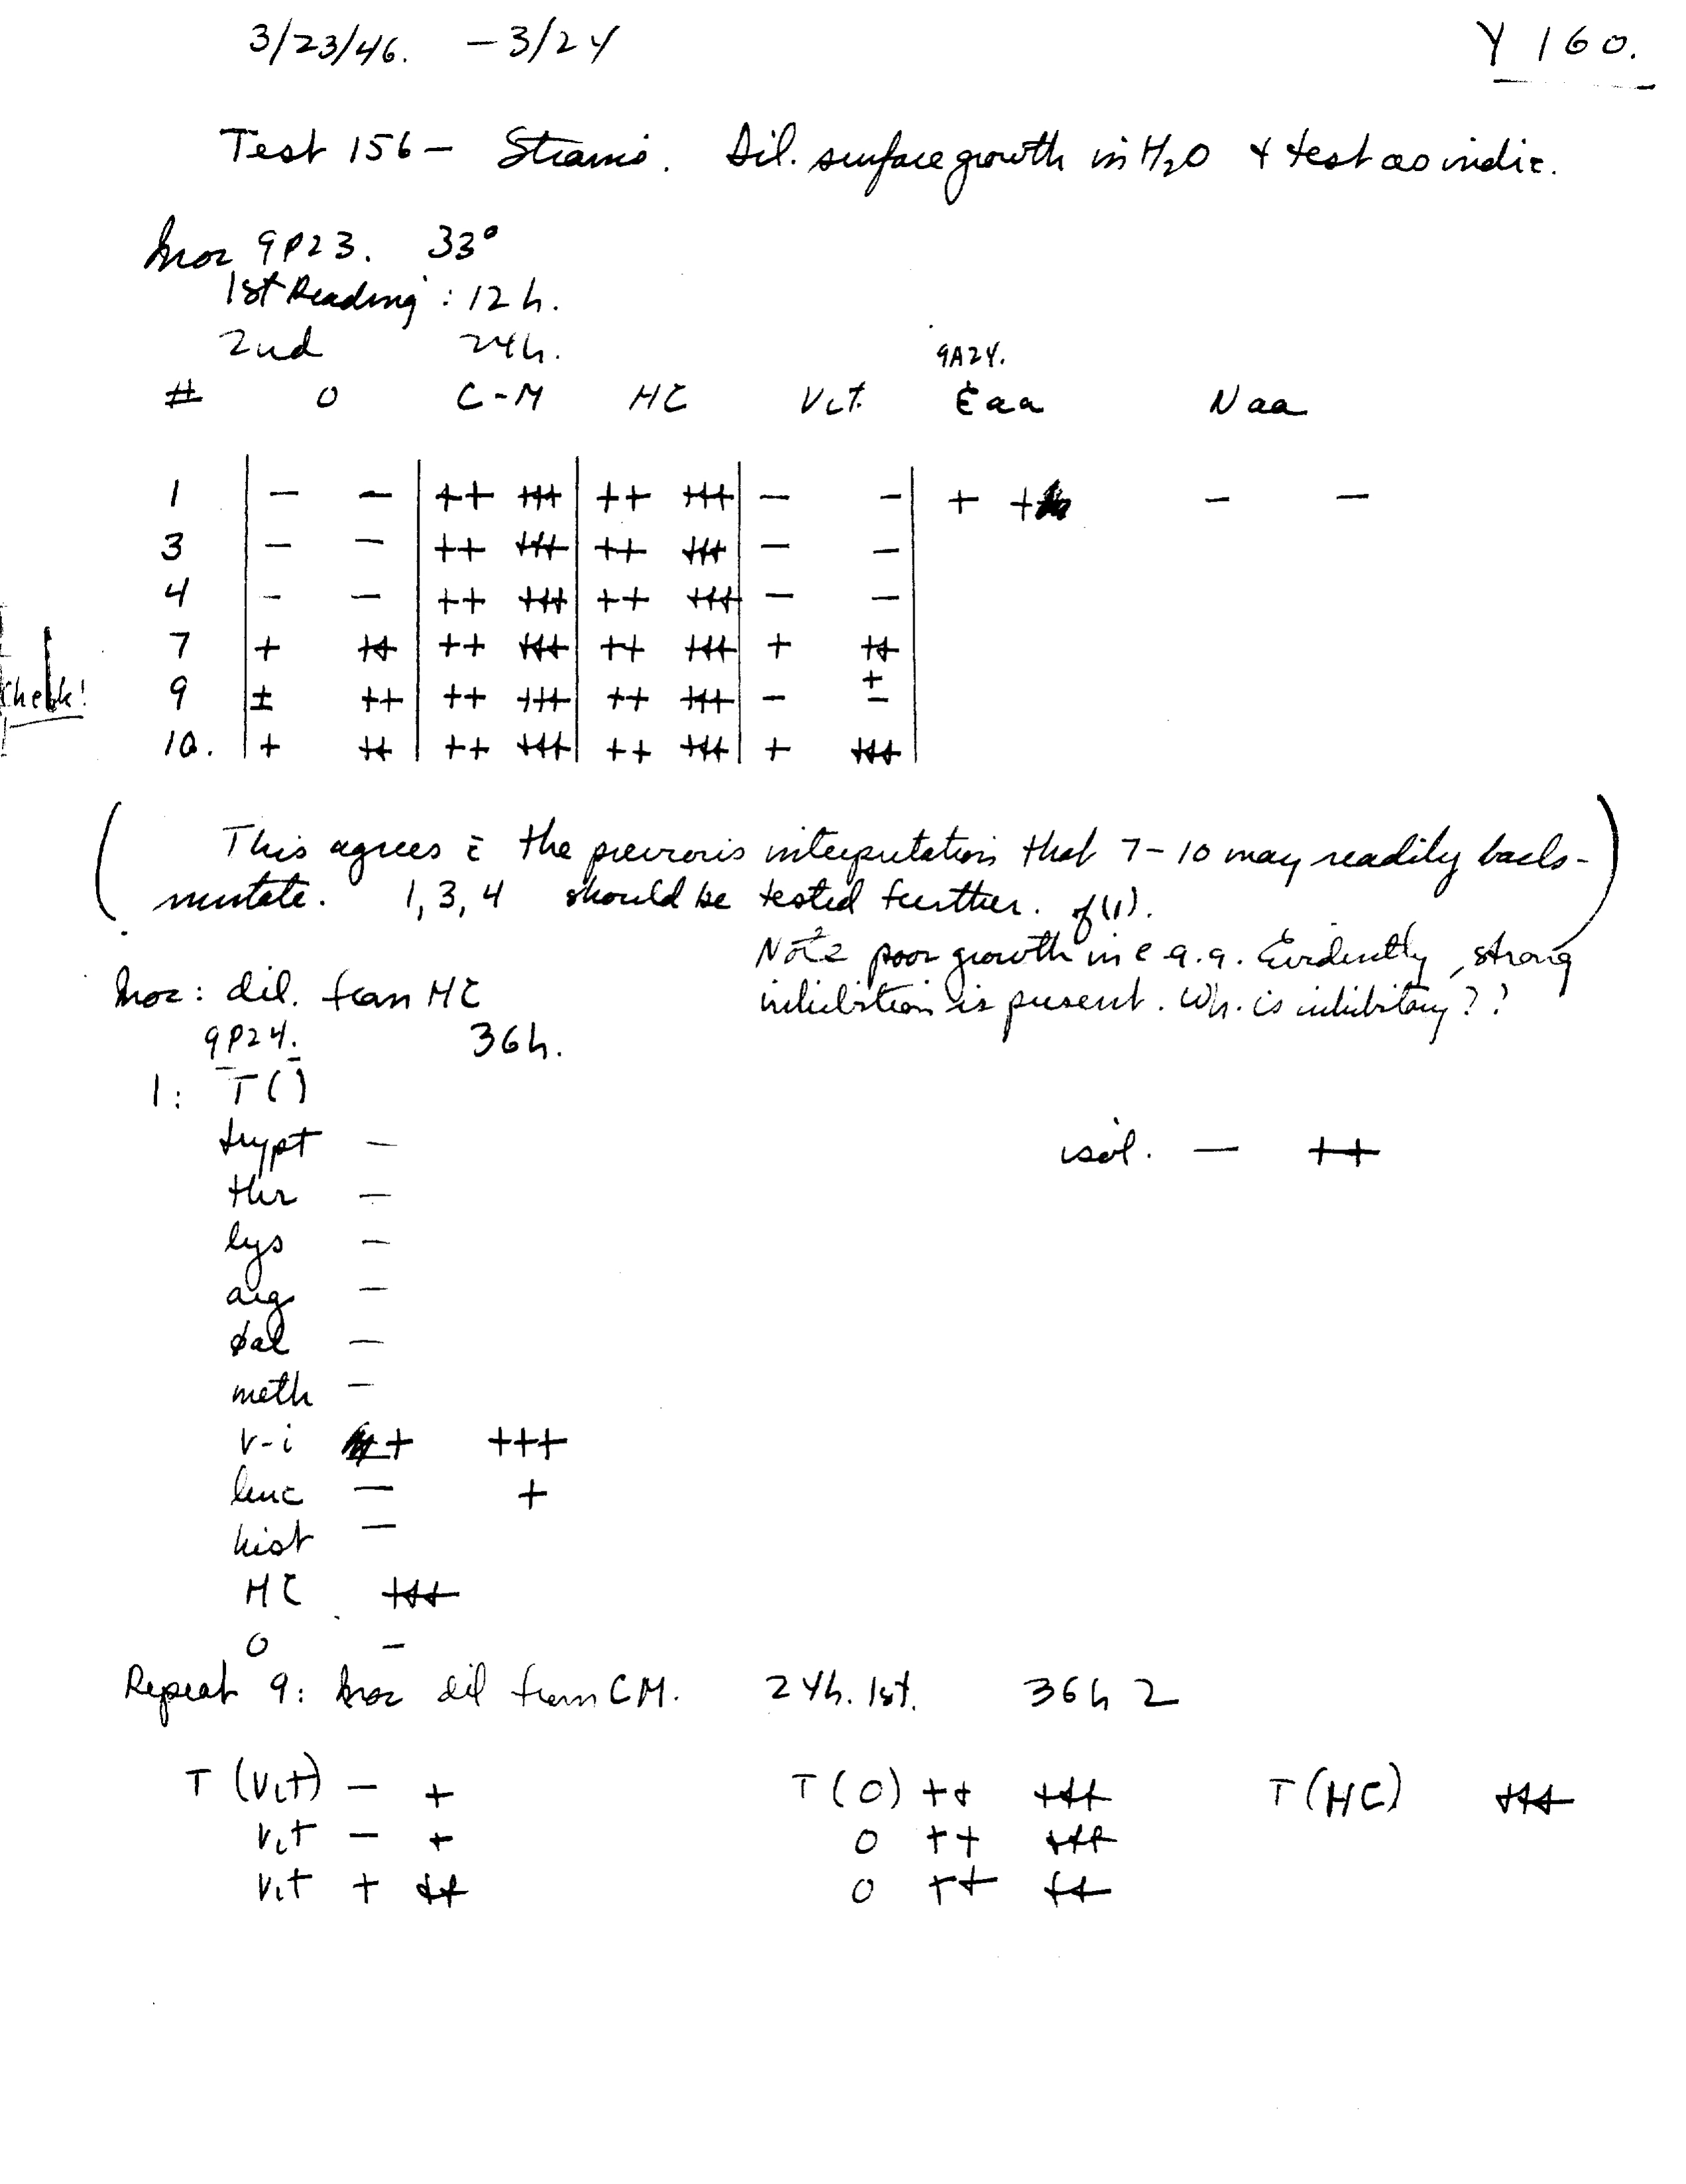 3/23/46. - 3/24
Y 160.
Test 156 - Strains. Dil. surface growth in H2O + test as indic.
Inoc 9P23. 33°
1st Reading : 12 h.
2nd 24h.
9A24.
# O C-M HC Vit. Eaa Naa
1 - - ++ +++ ++ +++ - - + + - -
3 - - ++ +++ ++ +++ - -
4 - - ++ +++ ++ +++ - -
7 + ++ ++ +++ ++ +++ + ++
Check! 9 ± ++ ++ +++ ++ +++ - ±
10. + ++ ++ +++ ++ +++ + +++
( This agrees c̄ the previous interpretation that 7-10 may readily back-
mutate. 1, 3, 4 should be tested further. of (1). )
Note poor growth in e a.a. Evidently, strong
inhibition is present. Wh. is inhibitory??
Inoc: dil. from HC
9P24. 36h.
1: T( )
trypt -
isol. - ++
thr -
lys -
arg -
φal -
meth -
v-i + +++
leuc - +
hist -
HC +++
O -
Repeat 9: Inoc dil from CM. 24h. 1st. 36 h 2
T (Vit) - + T(O) ++ +++ T(HC) +++
Vit - + O ++ +++
Vit + ++ O ++ ++